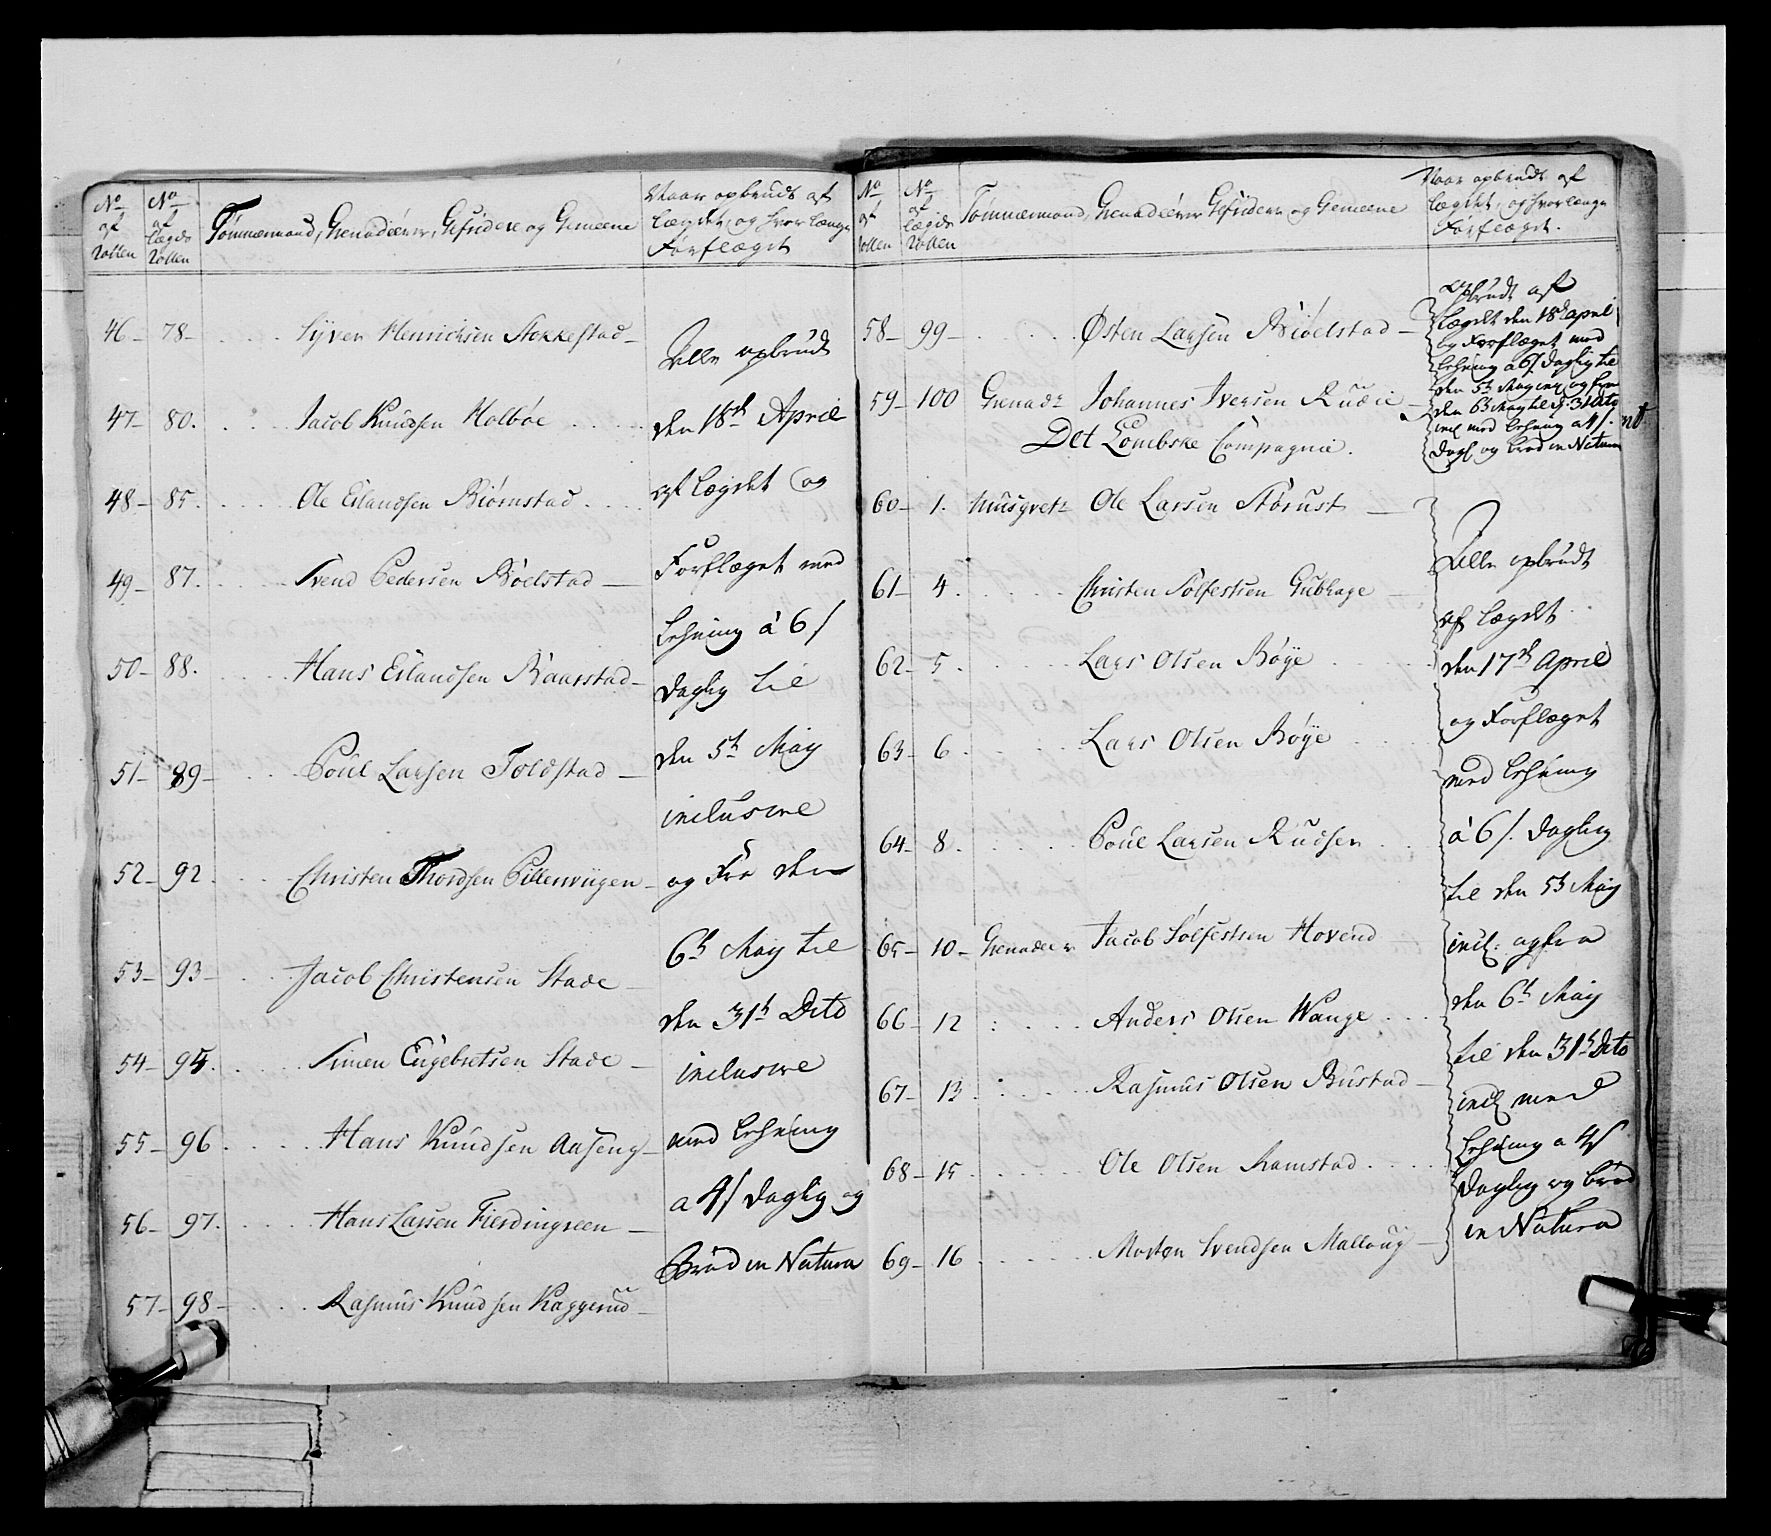 No af Rollen
No af Lægds Rollen
Tømmermænd, Grenadeerer, Gefridere og Gemeene
Naar opbrudt af
Lægdet, og hvorlænge
Forflæget
46 – 78 – Syver Henrichsen Stokkestad –
47 – 80. Jacob Knudsen Holbøe
48 – 85. Ole Erlandsen Biørnstad
49 – 87. Svend Pedersen Bøelstad –
50 – 88. Hans Erlandsen Baarstad –
51 – 89 – Poul Larsen Toldstad –
52 – 92 Christen Thordsen Pillenviigen –
53 – 93 – Jacob Christensen Stade –
54 – 95. Simen Engebretsen Stade –
55 – 96 Hans Knudsen Aaseng –
56 – 97. Hans Larsen Fierdingreen –
57 – 98 – Rasmus Knudsen Kaggerud –
Alle opbrudt
den 18de April
af Lægdet og
Forflæget med
Lehning á 6 s
daglig til
den 5te May
inclusive
og Fra den
6te May til
den 31te Dito
inclusive
med Lehning
a 4 s daglig og
Brød in Natura
No af Rollen
No af Lægds Rollen
Tømmermænd, Grenadeerer Gefridere og Gemeene
Naar opbrudt af
Lægdet, og hvorlænge
Forflæget.
58 – 99 – Østen Larsen Biøelstad –
59 – 100 Grenadr Johannes Iversen Rudie –
Det Lombske Compagnie.
Opbrudt af
Lægdet den 18de April
og Forflæget med
Lehning a 6 s daglig til
den 5te May incl og fra
den 6te May til d: 31 Dito
incl med Lehning a 4 s.
dagl og Brød in Natura
60 – 1. Musqvetr Ole Larsen Størust –
61 – 4. Christen Solfestsen Gubhage –
62 – 5. Lars Olsen Bøye
63 – 6. Lars Olsen Bøye
64 – 8. Poul Larsen Rudsen
65 – 10 – Grenadeer Jacob Solfestsen Hovend –
66 – 12 Anders Olsen Wange
67 – 13. Rasmus Olsen Bustad –
68 – 15 Ole Olsen Ramstad
69 – 16 Morten Svendsen Malloug –
Alle opbrudt
af Lægdet
den 17de April
og Forflæget
med Lehning
á 6 s. daglig
til den 5te May
incl. og fra
den 6te May
til den 31te Dito
incl med
Lehning a 4 s
daglig og Brød
in Natura